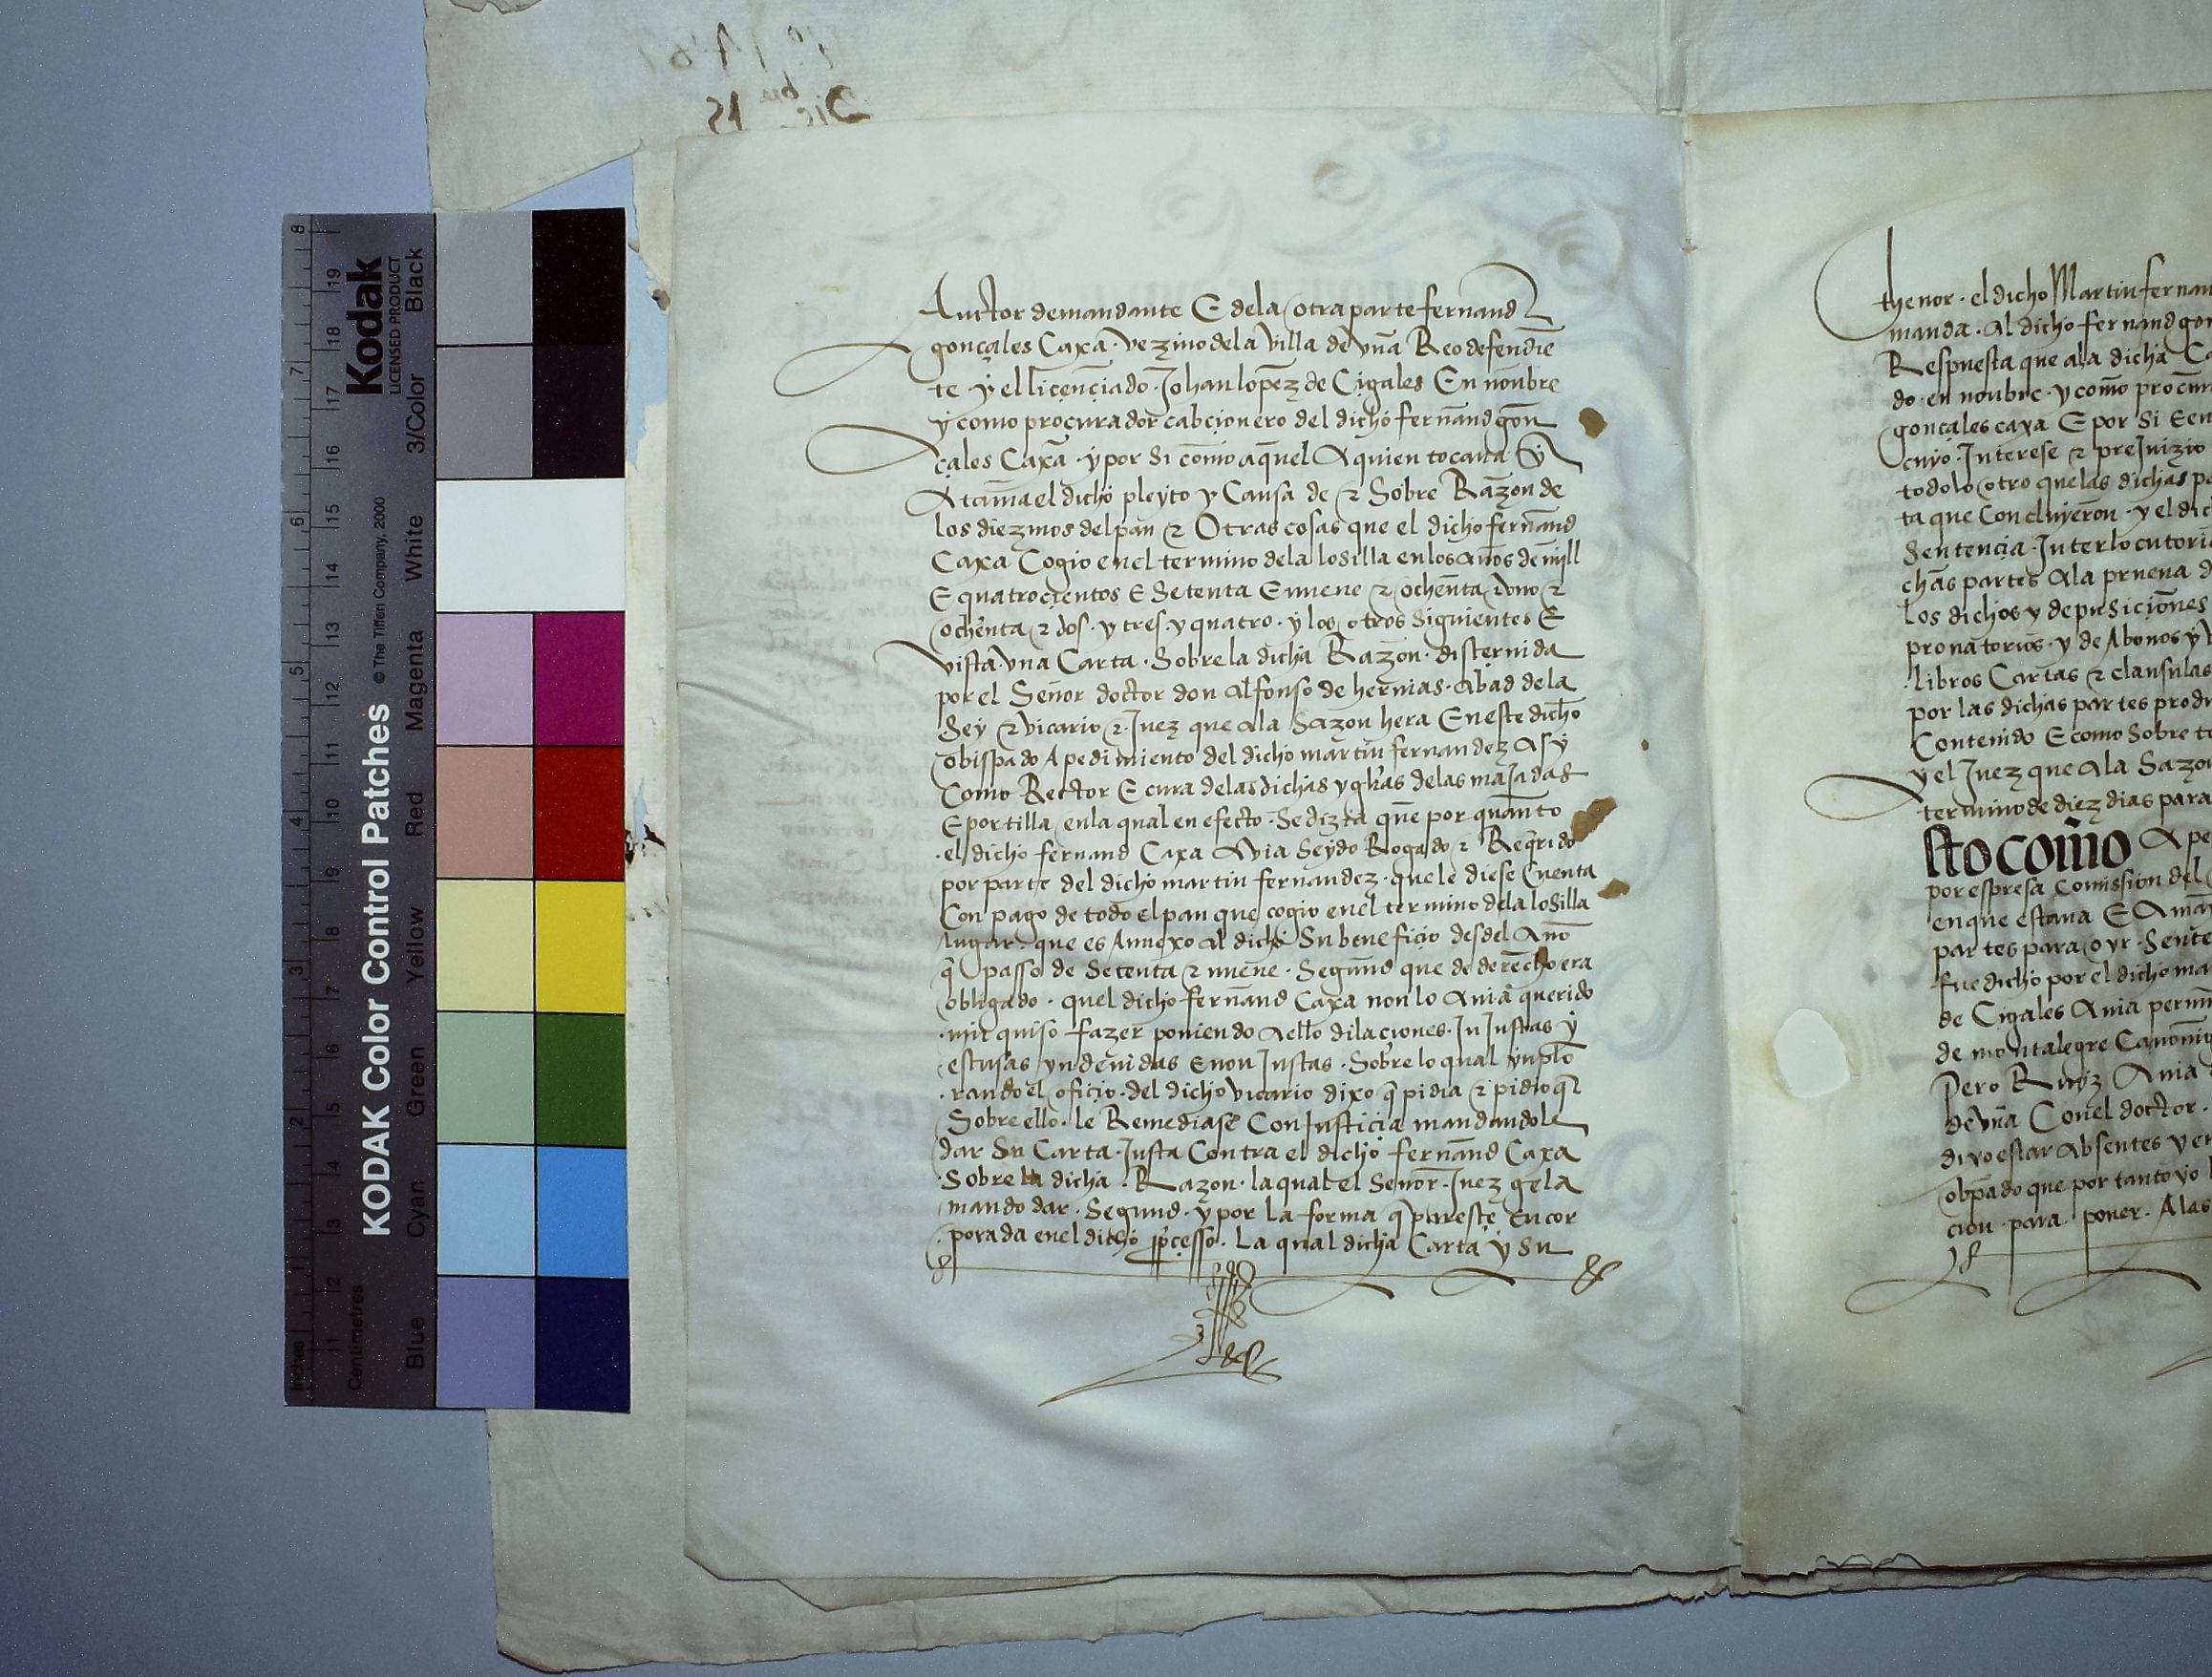 Auctor demandante E dela otra parte fernand
gonçales Caxa · vezino dela villa de vña Reo defendiē
te y el liçençiado · Johan lopez de Çigales En nonbre
y como procurador cabçionero del dicho fernand gon
çales Caxa · y por si como aquel A quien tocaua y
Atama el dicho pleyto y Causa de & Sobre Razon de
los diezmos del pan & Otras cosas que el dicho fernand
Caxa Cogio enel termino dela losilla en los años de mill
E quatroçientos E Setenta E nueue & ochenta & vno &
ochenta & dos · y tres · y quatro · y los otros Siguientes E
vista vna Carta · Sobre la dicha Razon · disçernida
por el Señor doctor don Alfonso de heruias · abad dela
Sey & vicario & Juez que ala Sazon hera En este dicho
obispado A pedimiento del dicho martin fernandez Asy
Como Rector E cura delas dichas yglias delas majadas
E portilla enla qual en efecto · Se dizia que por quanto
· el dicho fernand Caxa Avia Seydo Rogado & Reqrido
por parte del dicho martin fernandez · que le diese Cuenta
Con pago de todo el pan que cogio enel termino dela losilla
lugar · que es Annexo al dicho Su benefiçio desdel Año
q̄ passo de Setenta & nueue · Segund que de derecho era
obligado · quel dicho fernand Caxa non lo Auia querido
· nin quiso fazer poniendo Aello dilaciones · Injustas y
escusas yndeuidas E non Justas · Sobre lo qual ynplo
· rando el ofiçio · del dicho vicario dixo q̄ pidia & pidio q̄
Sobre ello · le Remediase Con Justiçia mandandole
dar Su Carta · Justa Contra el dicho fernand Caxa
· Sobre la dicha · Razon · la qual el Señor · Juez gela
mando dar · Segund · y por la forma q̄ paresçe Encor
· porada enel dicho proçesso · La qual dicha Carta y Su
thenor · el dicho Martin fernan
manda · Al dicho fernand gon
Respuesta que ala dicha Ca
do · en nonbre · y como procur
gonçales caxa E por Si E en
cuyo · Interese & preJuizio
todo lo otro que las dichas pa
ta que Concluyeron · y el dic
Sentençia · Interlocutori
chas partes ala prueua d
Los dichos y depusiçiones
prouatorios · y de Abonos y
· libros Cartas & clausulas
por las dichas partes produ
Contenido E como Sobre to
y el Juez que Ala Sazon
termino de diez dias para
sto como A pe
por espresa Comission del
en que estaua E Aman
partes para oyr · Sente
fue dicho por el dicho ma
de Çigales Auia perm
de montalegre Canonig
Pero Ruyz Auia
de vña Conel doctor ·
diyo estar Absentes y en
obpado que por tanto yo
çion · para · poner · A las
KODAK Color Control Patches
© The Tiffen Company, 2000
Kodak
LICENSED PRODUCT
Black
3/Color
White
Magenta
Red
Yellow
Green
Cyan
Blue
Inches
Centimetres